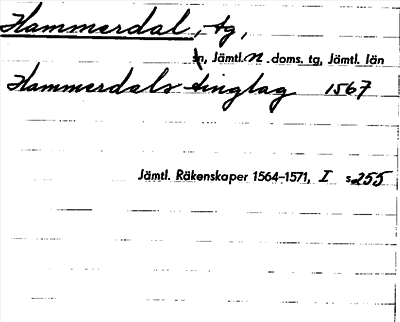 Hammerdal, tg,
sn, Jämtl. n. doms. tg, Jämtl. län
Hammerdals tinglag 1567
Jämtl. Räkenskaper 1564-1571, I s 255